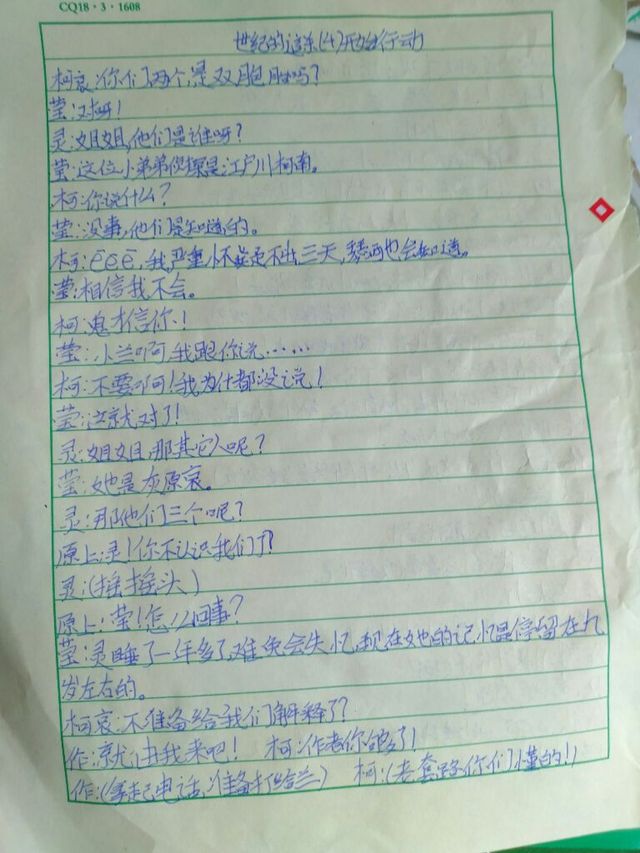 CQ18·3·1608
世纪的追杀(4)开始行动
柯哀:你们两个是双胞胎吗?
莹:对呀!
灵:姐姐,他们是谁呀?
莹:这位小弟弟侦探是江户川柯南。
柯:你说什么?
莹:没事,他们是知道的。
柯:ēēē,我严重怀疑是不出三天,琴酒也会知道。
莹:相信我不会。
柯:鬼才信你!
莹:小兰啊,我跟你说……
柯:不要啊!我为什都没说!
莹:这就对了!
灵:姐姐,那其它人呢?
莹:她是灰原哀。
灵:那他们三个呢?
原上:灵!你不认识我们了?
灵:(摇摇头)
原上:莹!怎么回事?
莹:灵睡了一年多了,难免会失忆,现在她的记忆是停留在九
岁左右的。
柯哀:不准备给我们解释了?
作:就由我来吧! 柯:作者你够了!
作:(拿起电话,准备打给兰) 柯:(老套路你们懂的!)